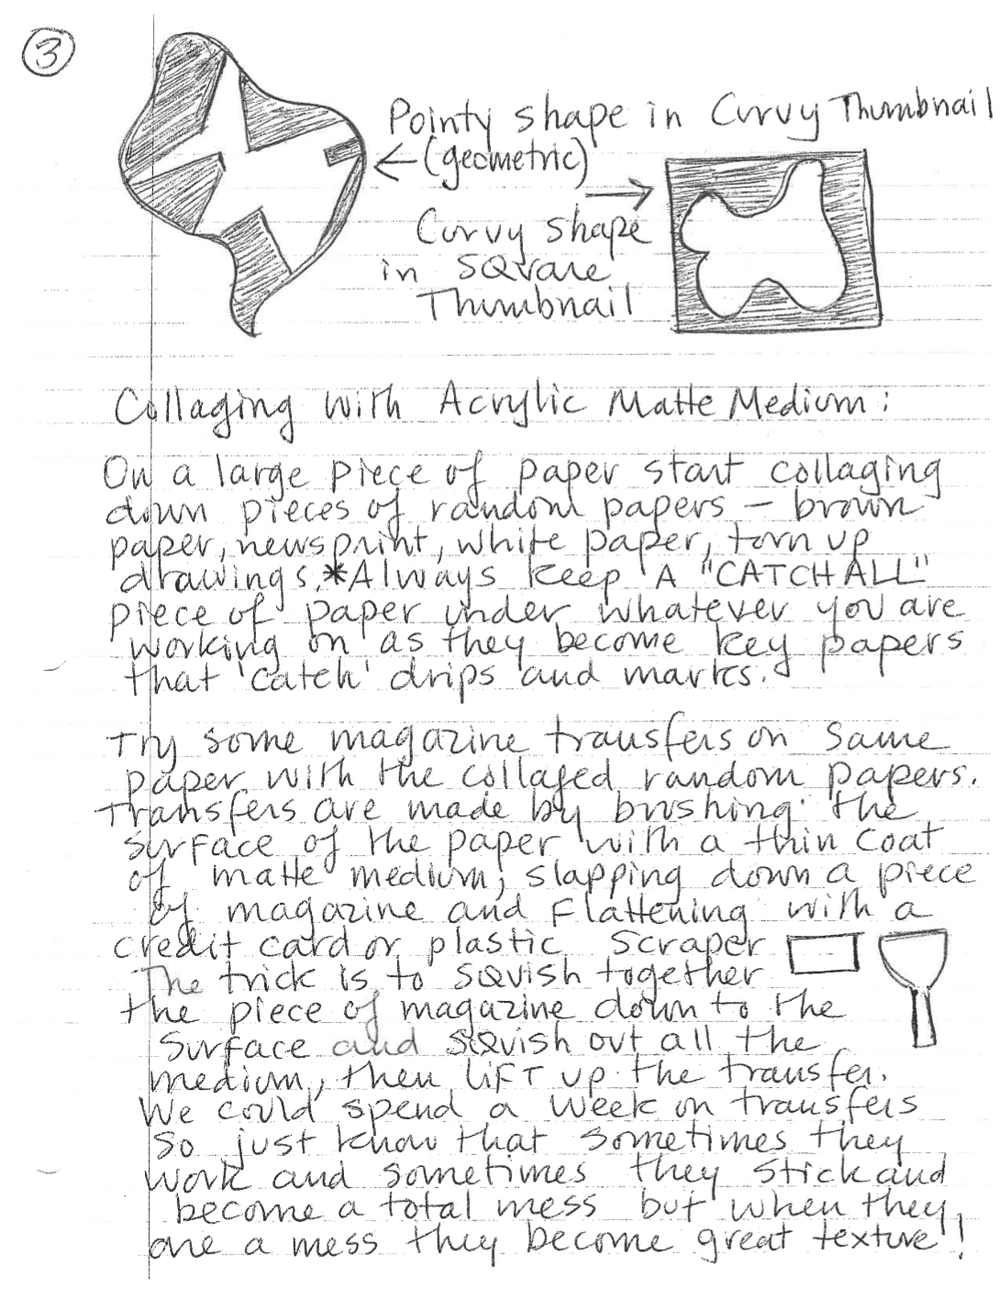 3
Pointy shape in Curvy Thumbnail
←(geometric)
→
Curvy shape
in SQuare
Thumbnail
Collaging with Acrylic Matte Medium:
On a large piece of paper start collaging
down pieces of random papers – brown
paper, newsprint, white paper, torn up
drawings.*Always keep A "CATCHALL"
piece of paper under whatever you are
working on as they become key papers
that 'catch' drips and marks.
Try some magazine transfers on same
paper with the collaged random papers.
Transfers are made by brushing the
surface of the paper with a thin coat
of matte medium, slapping down a piece
of magazine and flattening with a
credit card or plastic scraper
The trick is to squish together
the piece of magazine down to the
surface and squish out all the
medium, then LIFT up the transfer.
We could spend a week on transfers
so just know that sometimes they
work and sometimes they stick and
become a total mess but when they
are a mess they become great texture!